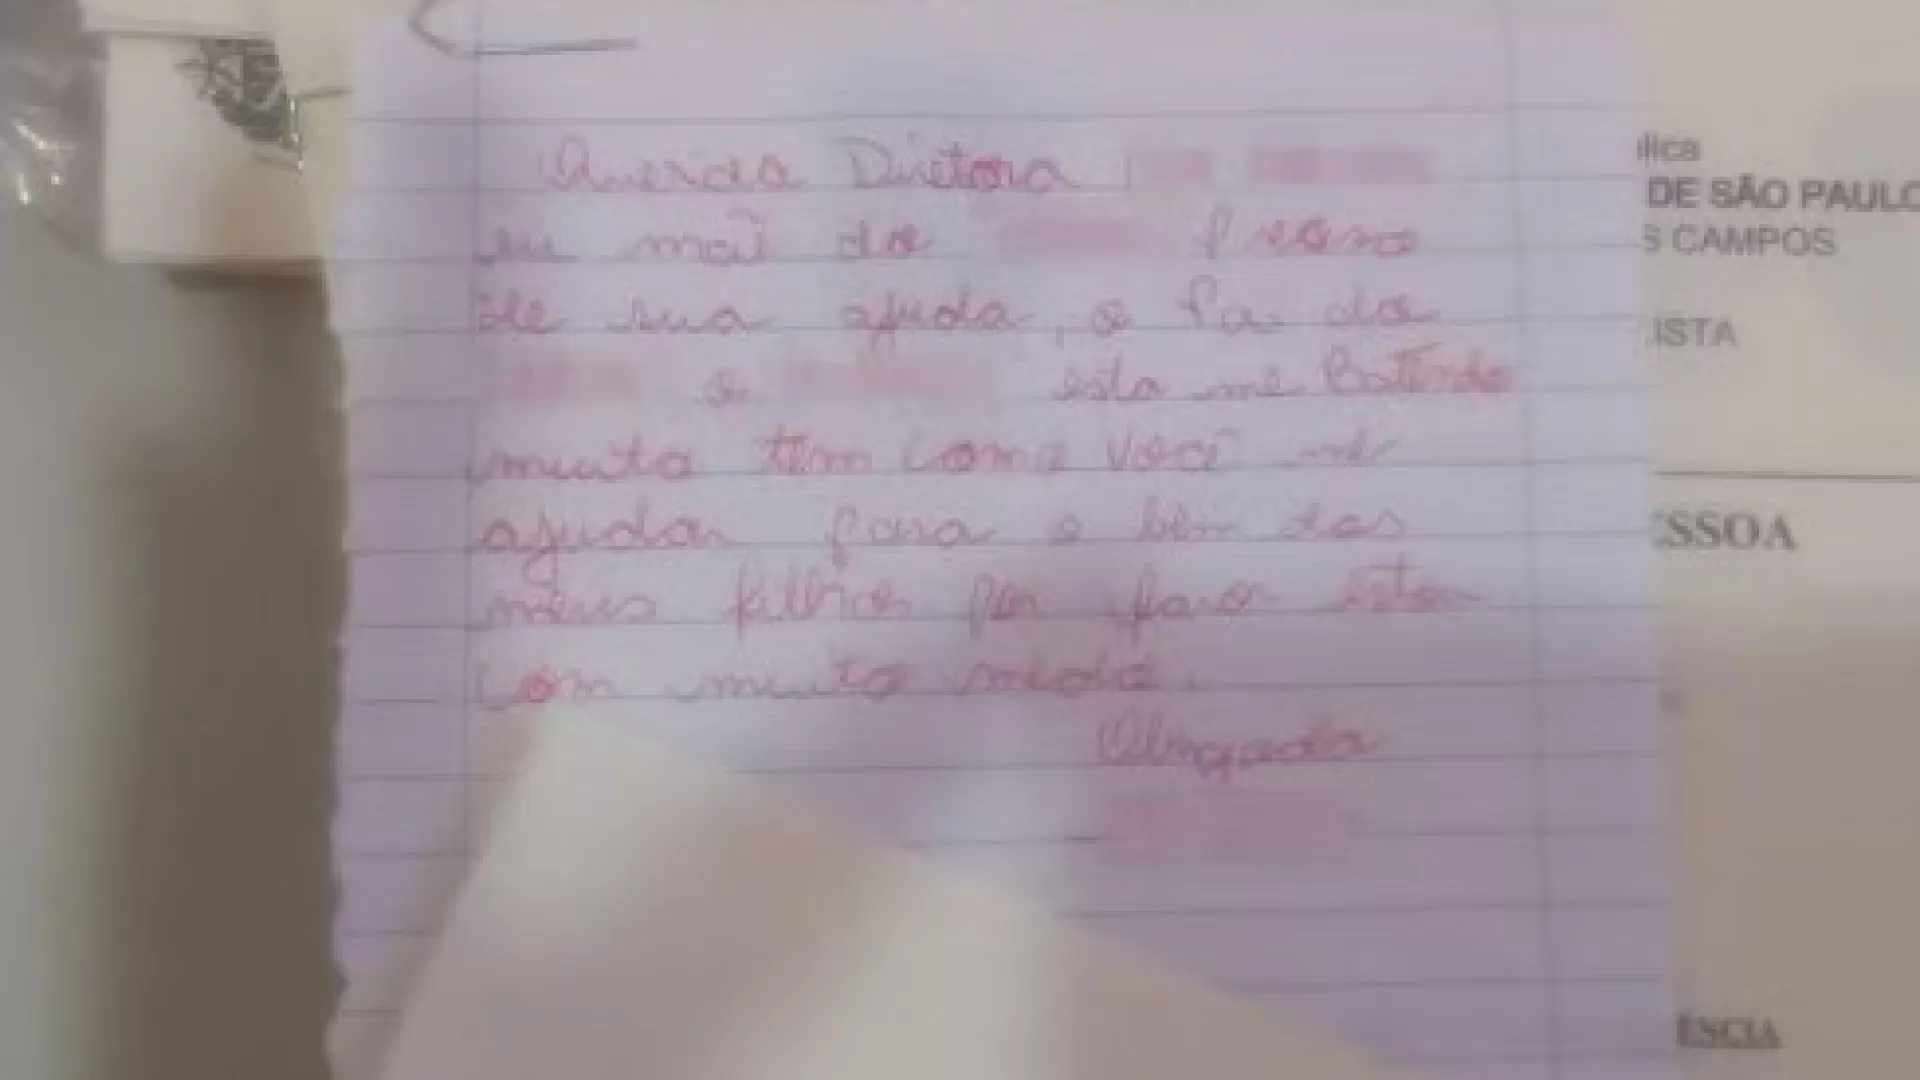 Querida Diretora
eu mãe de preciso
de sua ajuda, o Pai da
e esta me Batendo
muito tem como você me
ajudar para o bem dos
meus filhos por favor estou
com muito medo.
Obrigada
DE SÃO PAULO
S CAMPOS
ISTA
ESSOA
ÊNCIA